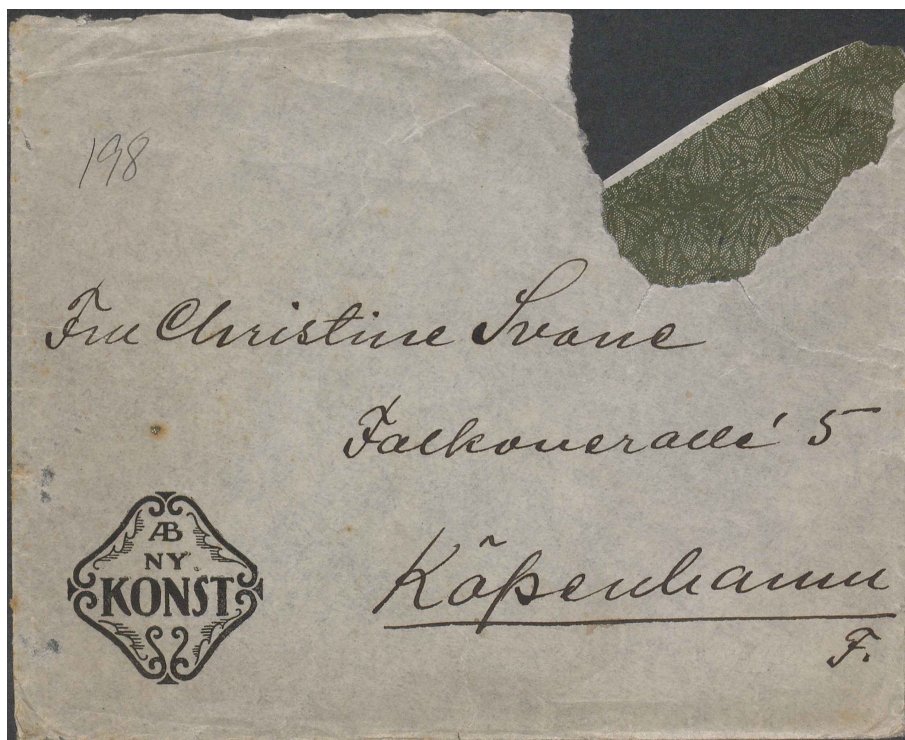 198
Fru Christine Svane
Falkoneralle' 5
Köpenhamn
F.
AB
NY
KONST